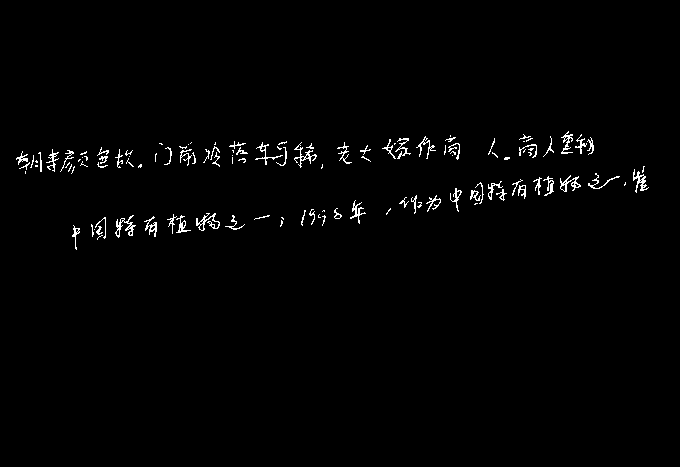 朝来颜色故。门前冷落车马稀,老大嫁作商人。商人重利
中国特有植物之一,1998年,作为中国特有植物之一,雀